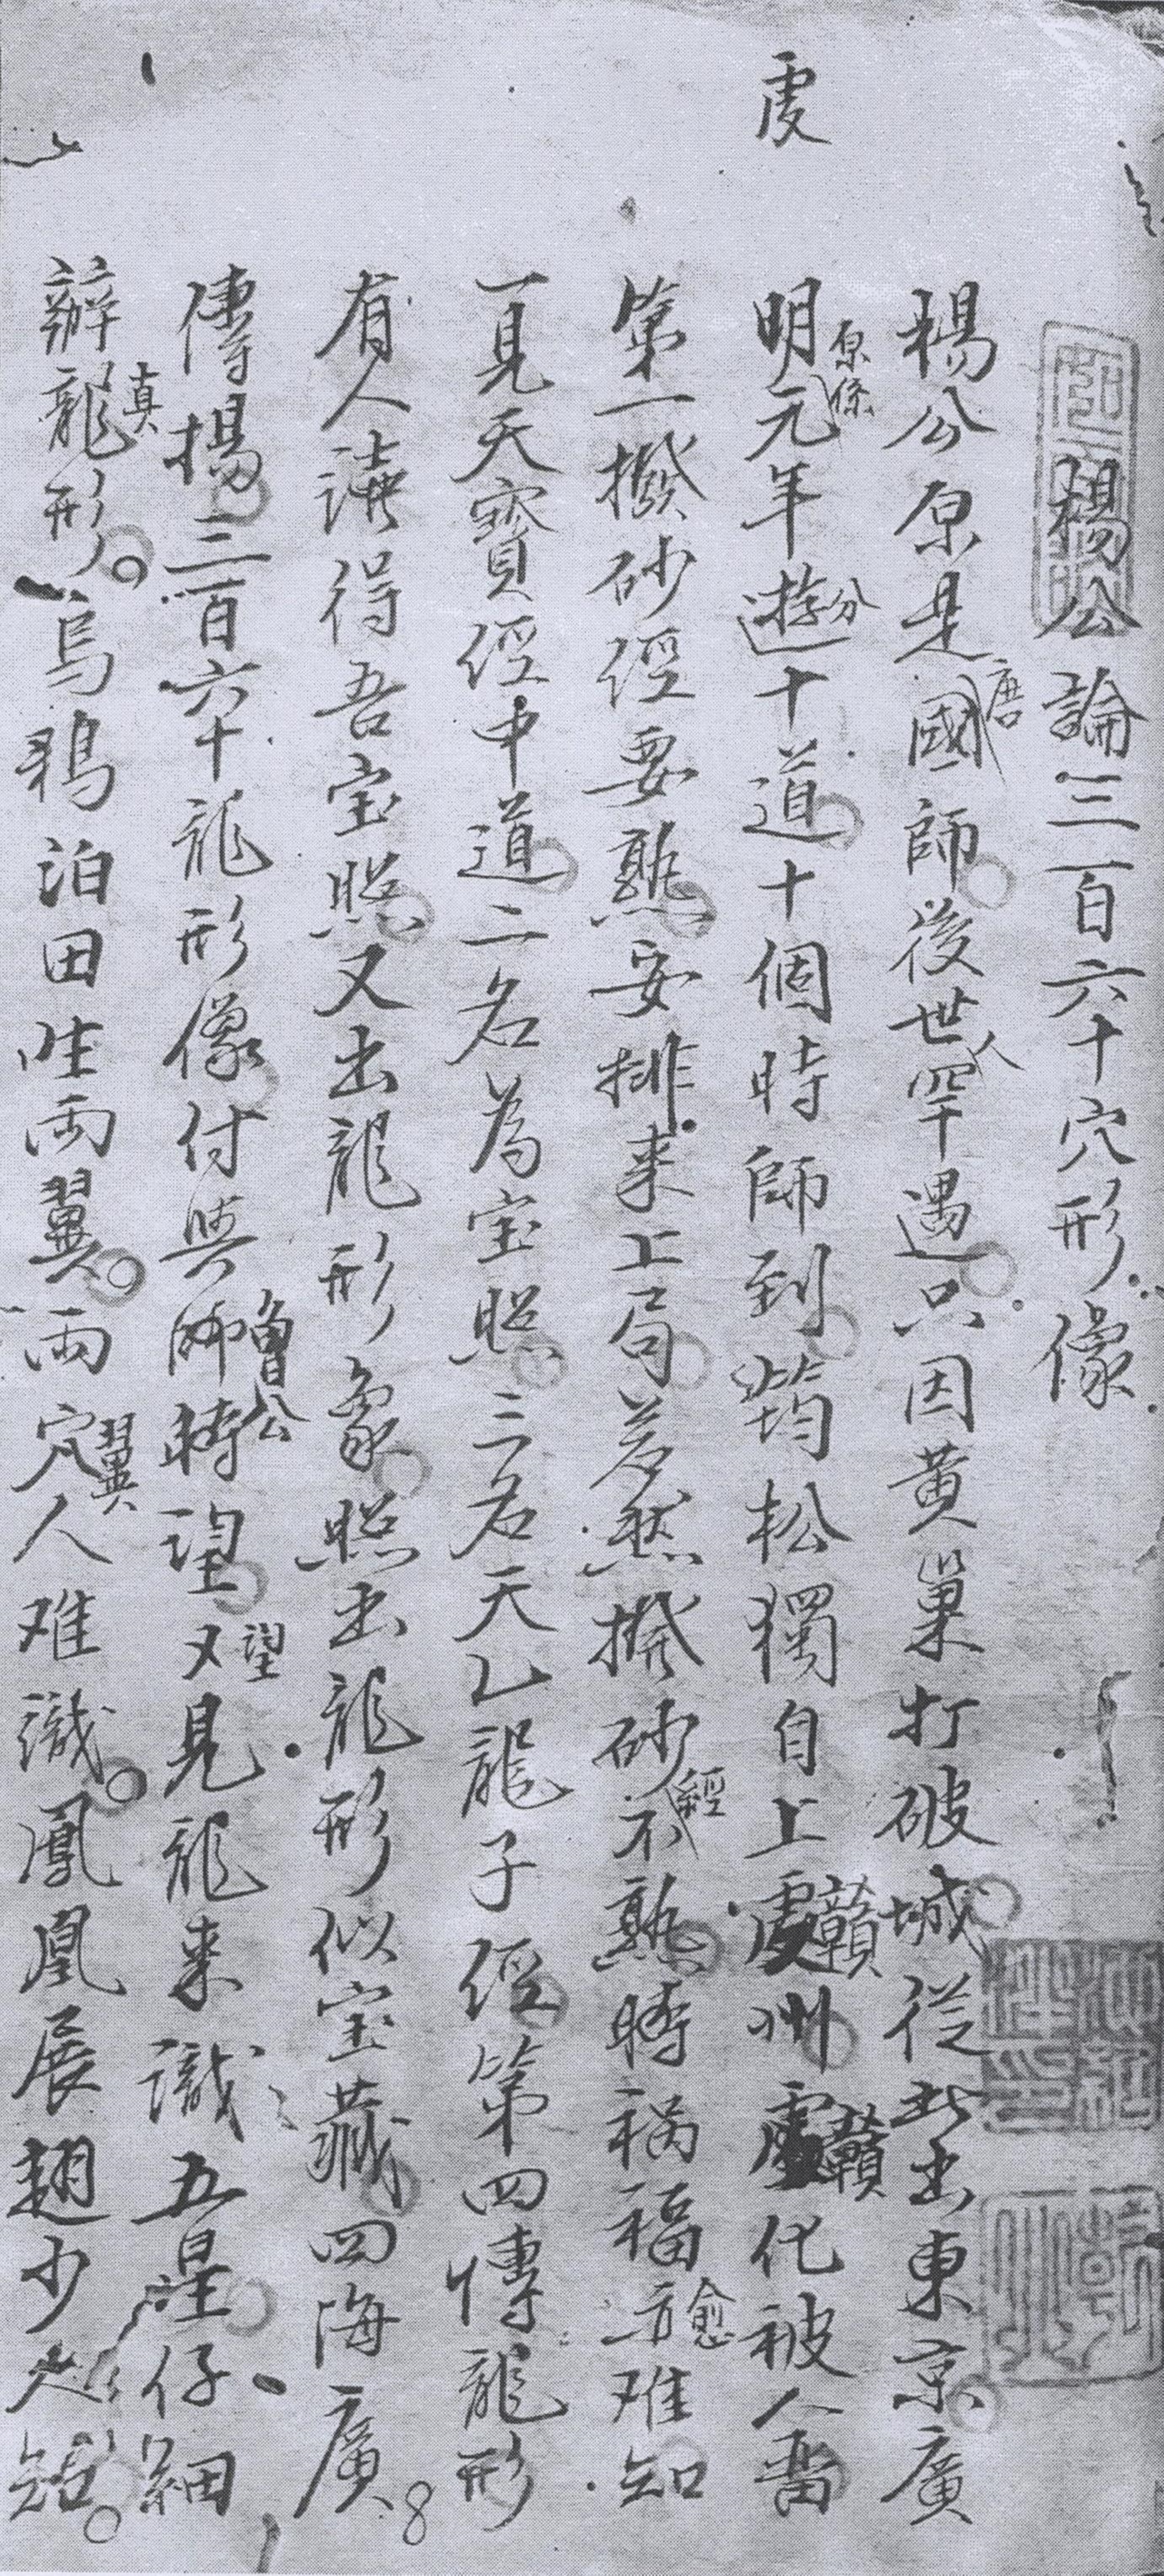 楊公論三百六十穴形像
楊公原是國唐師後世人罕遇只因黃巢打破城從此出東京廣
虔
明元原係年遊分十道十個時師到筠松獨自上虔贛州虔贛化被人留
第一撥砂經要熟安排来上句若然撥砂不經熟時禍福方愈难知
一見天寶經中道二名為宝照三名天乙龍子經第四傳龍形
有人讀得吾宝照又出龍形象照出龍形似宝藏四海廣
傳揚三百六十龍形像付與師曾公時望又望見龍来識五星仔細
辦龍真形烏鴉泊田生両翼両穴翼人难識鳳凰展翅少人